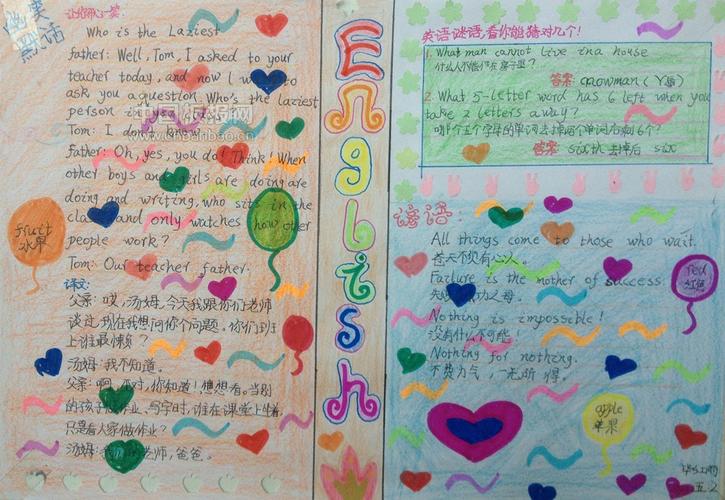 幽默笑话
让你开心一笑:
Who is the Laziest
father: Well, Tom, I asked to your
teacher today, and now I to
ask you a question. Who's the laziest
person in
Tom: I don't know
father: Oh, yes, you do! Think! When
other boys and girls are doing are
doing and writing, who sits in the
class and only watches how other
people work?
Tom: Our teacher, father.
译文:
父亲:哎,汤姆,今天我跟你们老师
谈过,现在我想问你个问题。你们班
上谁最懒?
汤姆:我不知道。
父亲:啊,不对,你知道!想想看。当别
的孩子做作业、写字时,谁在课堂上坐着,
只是看人家做作业?
汤姆:我们的老师,爸爸。
fruit
水果
English
英语谜语,看你能猜对几个!
1. What man cannot live in a house
什么人不能住在房子里?
答案: snowman(雪人)
2. What 5-letter word has 6 left when you
take 2 letters away?
哪个五个字母的单词去掉两个单词后剩6个?
答案 sixth 去掉后 six
谚语:
All things come to those who wait.
苍天不负有心人。
Failure is the mother of success.
失败是成功之母。
Nothing is impossible!
没有什么不可能!
Nothing for nothing.
不费力气,一无所得。
red
红色
apple
苹果
五.2
中国儿童板报网
www.chuanbao.cn